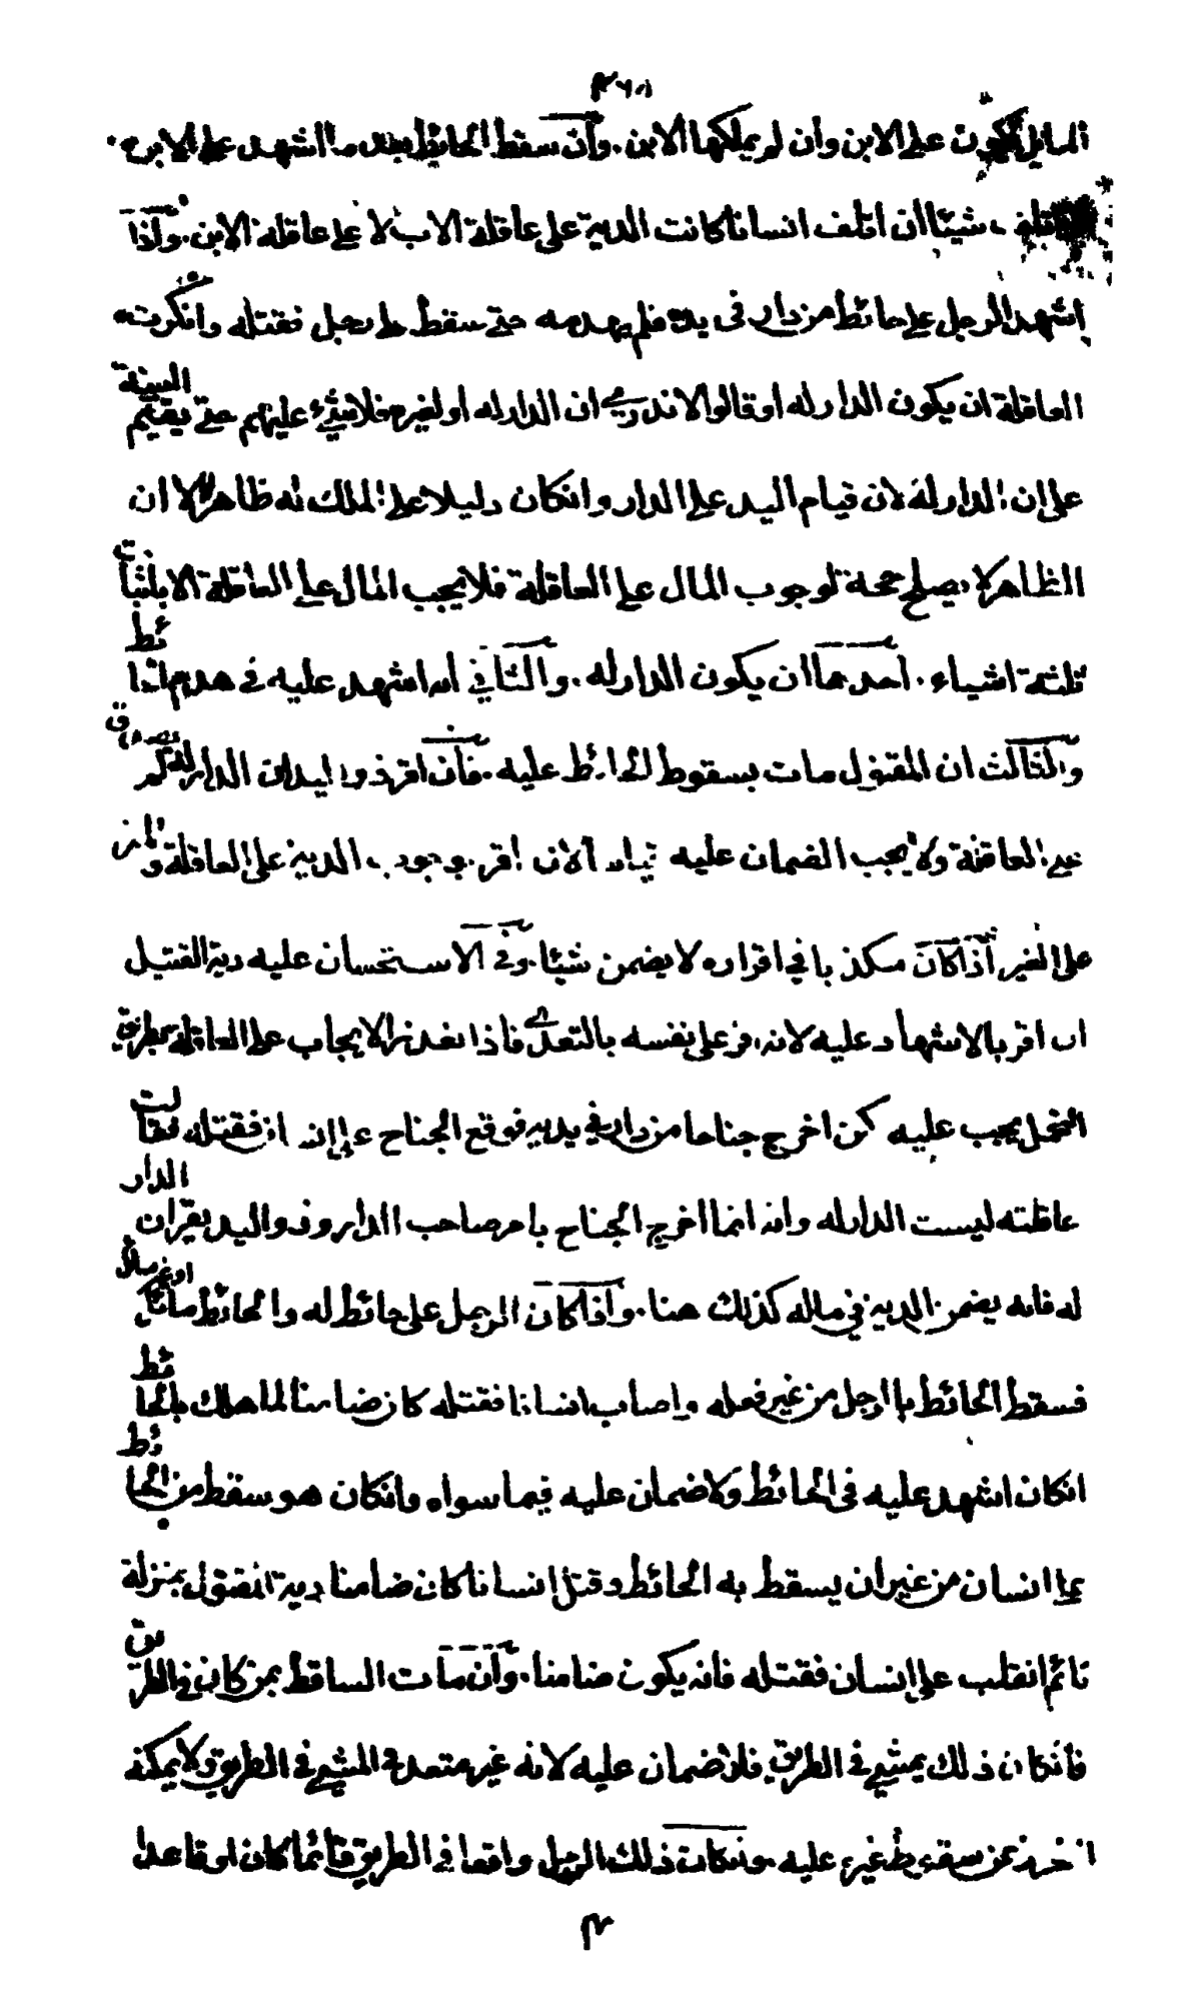 المايل يكون على الابن وان لم يملكها الابن . وان سقط الحائط بعد ما اشهد على الابن
فاتلف شيئا ان اتلف انسانا كانت الدية على عاقلة الاب لا على عاقلة الابن . واذا
اشهد الرجل على حائط من دار في يده فلم يهدمه حتى سقط على رجل فقتله وانكرت
العاقلة ان يكون الدار له او قالوا لا ندري ان الدار له او لغيره فلا شيء عليهم حتى يقيم البينة
على ان الدار له لان قيام اليد على الدار وانكان دليلا على الملك له ظاهرا الا ان
الظاهر لا يصلح حجة لوجوب المال على العاقلة فلا يجب المال على العاقلة الا باثبات
ثلثة اشياء . احدهما ان يكون الدار له . والثاني انه اشهد عليه في هدم الحائط
والثالث ان المقتول مات بسقوط الحائط عليه . فان اقر ذو اليد ان الدار له لم يصدق
على العاقلة ولا يجب الضمان عليه قياسا لانه اقر بوجوب الدية على العاقلة والمقر
على الغير اذا كان مكذبا في اقراره لا يضمن شيئا . وفي الاستحسان عليه دية القتيل
ان اقر بالاشهاد عليه لانه اقر على نفسه بالتعدي فاذا تعذر الايجاب على العاقلة بطريق
التحمل يجب عليه كمن اخرج جناحا من دار في يديه فوقع الجناح على انسان فقتله فقالت
عاقلته ليست الدار له وانه انما اخرج الجناح بامر صاحب الدار وذو اليد يقر ان الدار
له فانه يضمن الدية في ماله كذلك هنا . واذا كان الرجل على حائط له والحائط مائل او غير مائل
فسقط الحائط بالرجل من غير فعله واصاب انسانا فقتله كان ضامنا لما هلك بالحائط
انكان اشهد عليه في الحائط ولا ضمان عليه فيما سواه وانكان هو سقط من الحائط
على انسان من غير ان يسقط به الحائط وقتل انسانا كان ضامنا دية المقتول بمنزلة
نائم انقلب على انسان فقتله فانه يكون ضامنا . وان مات الساقط بمن كان في الطريق
فانكان ذلك يمشي في الطريق فلا ضمان عليه لانه غير متعد في المشي في الطريق ولا يمكنه
التحرز عن سقوط غيره عليه . وانكان ذلك الرجل واقفا في الطريق قائما كان او قاعدا